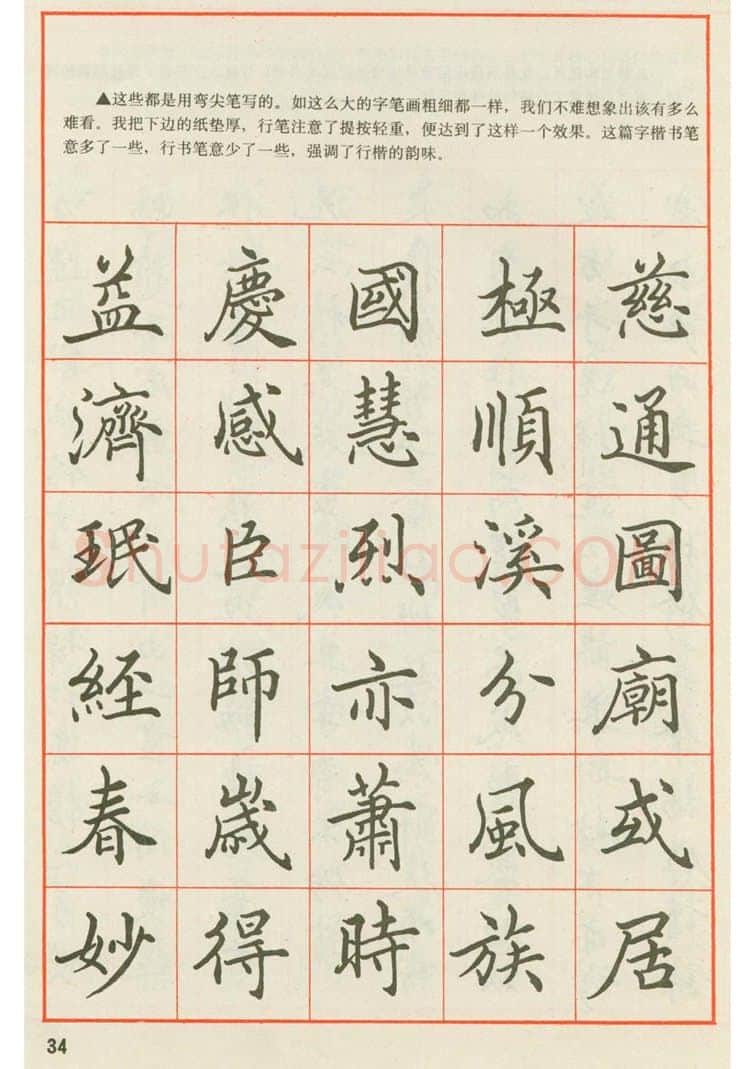 ▲这些都是用弯尖笔写的。如这么大的字笔画粗细都一样，我们不难想象出该有多么
难看。我把下边的纸垫厚，行笔注意了提按轻重，便达到了这样一个效果。这篇字楷书笔
意多了一些，行书笔意少了一些，强调了行楷的韵味。
益慶國極慈
濟感慧順通
珉臣烈溪圖
經師亦分廟
春歲蕭風或
妙得時族居
shufaziliao.COM
34